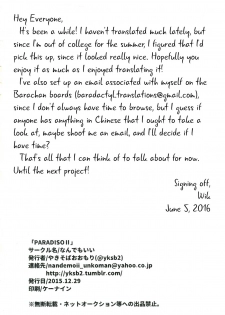 Hey Everyone,
It's been a while! I haven't translated much lately, but
since I'm out of college for the summer, I figured that I'd
pick this up, since it looked really nice. Hopefully you
enjoy it as much as I enjoyed translating it!
I've also set up an email associated with myself on the
Barachan boards (baradactyl.translations@gmail.com),
since I don't always have time to browse, but I guess if
anyone has anything in Chinese that I ought to take a
look at, maybe shoot me an email, and I'll decide if I
have time?
That's all that I can think of to talk about for now.
Until the next project!
Signing off,
Wik
June 5, 2016
「PARADISOⅡ」
サークル名/なんでもいい
発行者/やきそばおおもり(@yksb2)
連絡先/nandemoii_unkoman@yahoo.co.jp
http://yksb2.tumblr.com/
発行日/2015.12.29
印刷/ケーナイン
※無断転載・ネットオークション等への出品禁止。